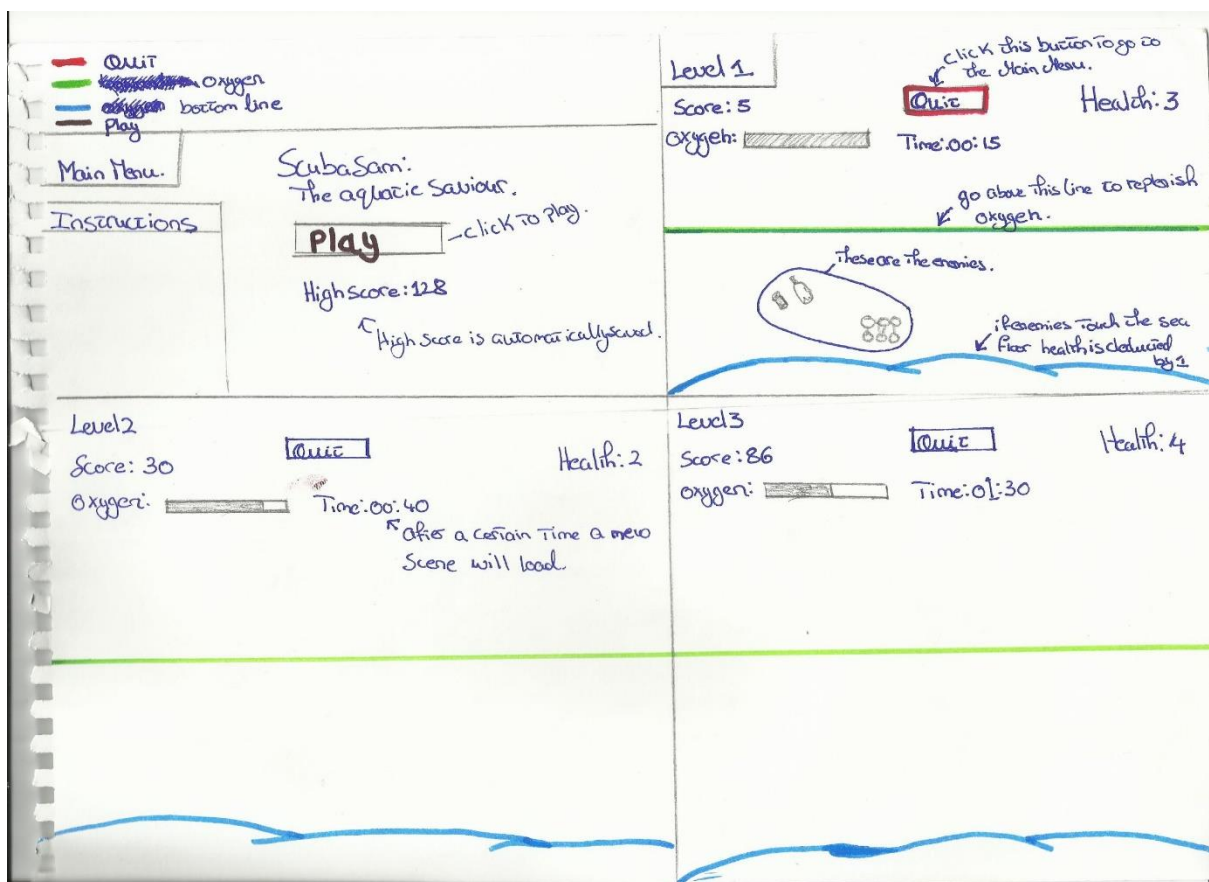 Quit
oxygen
bottom line
Play
Main Menu.
Instructions
ScubaSam:
The aquatic Saviour.
Play
click to play.
High Score: 128
High Score is automatically saved.
Level 1
click this button to go to
the Main Menu.
Score: 5
Quit
Health: 3
oxygen:
Time: 00:15
go above this line to replenish
oxygen.
These are the enemies.
if enemies touch the sea
floor health is deducted
by 1
Level 2
Quit
Score: 30
Health: 2
oxygen:
Time: 00:40
After a certain time a new
Scene will load.
Level 3
Quit
Health: 4
Score: 86
oxygen:
Time: 01:30